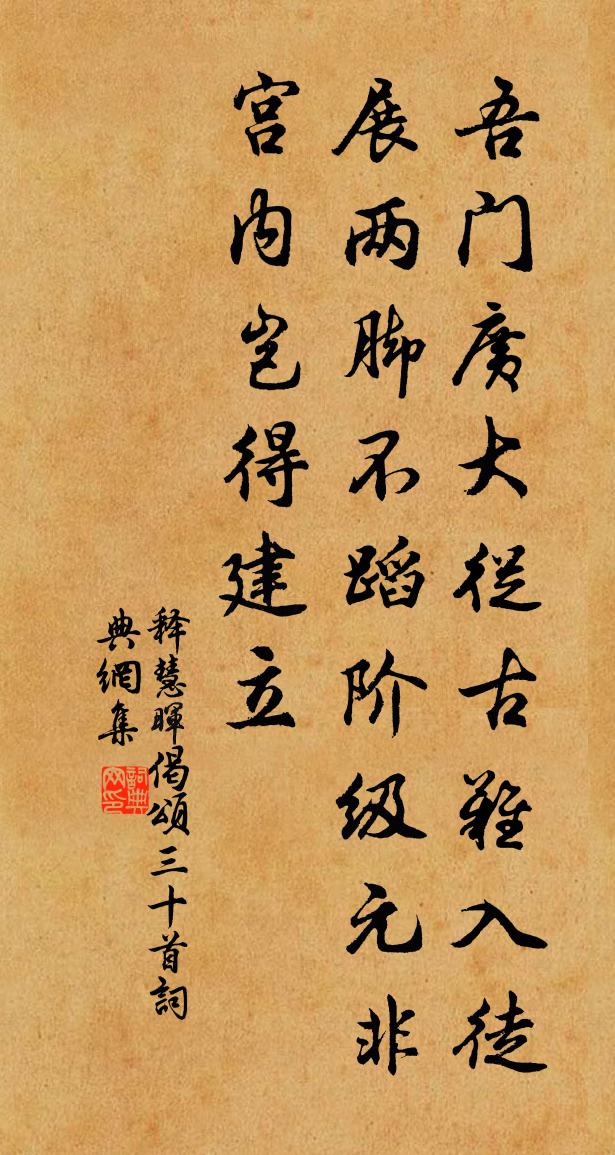 吾门廣大從古難入徒
展两脚不蹈阶级元非
宫内岂得建立
释慧暉偈頌三十首詞
典網集
詞典网印